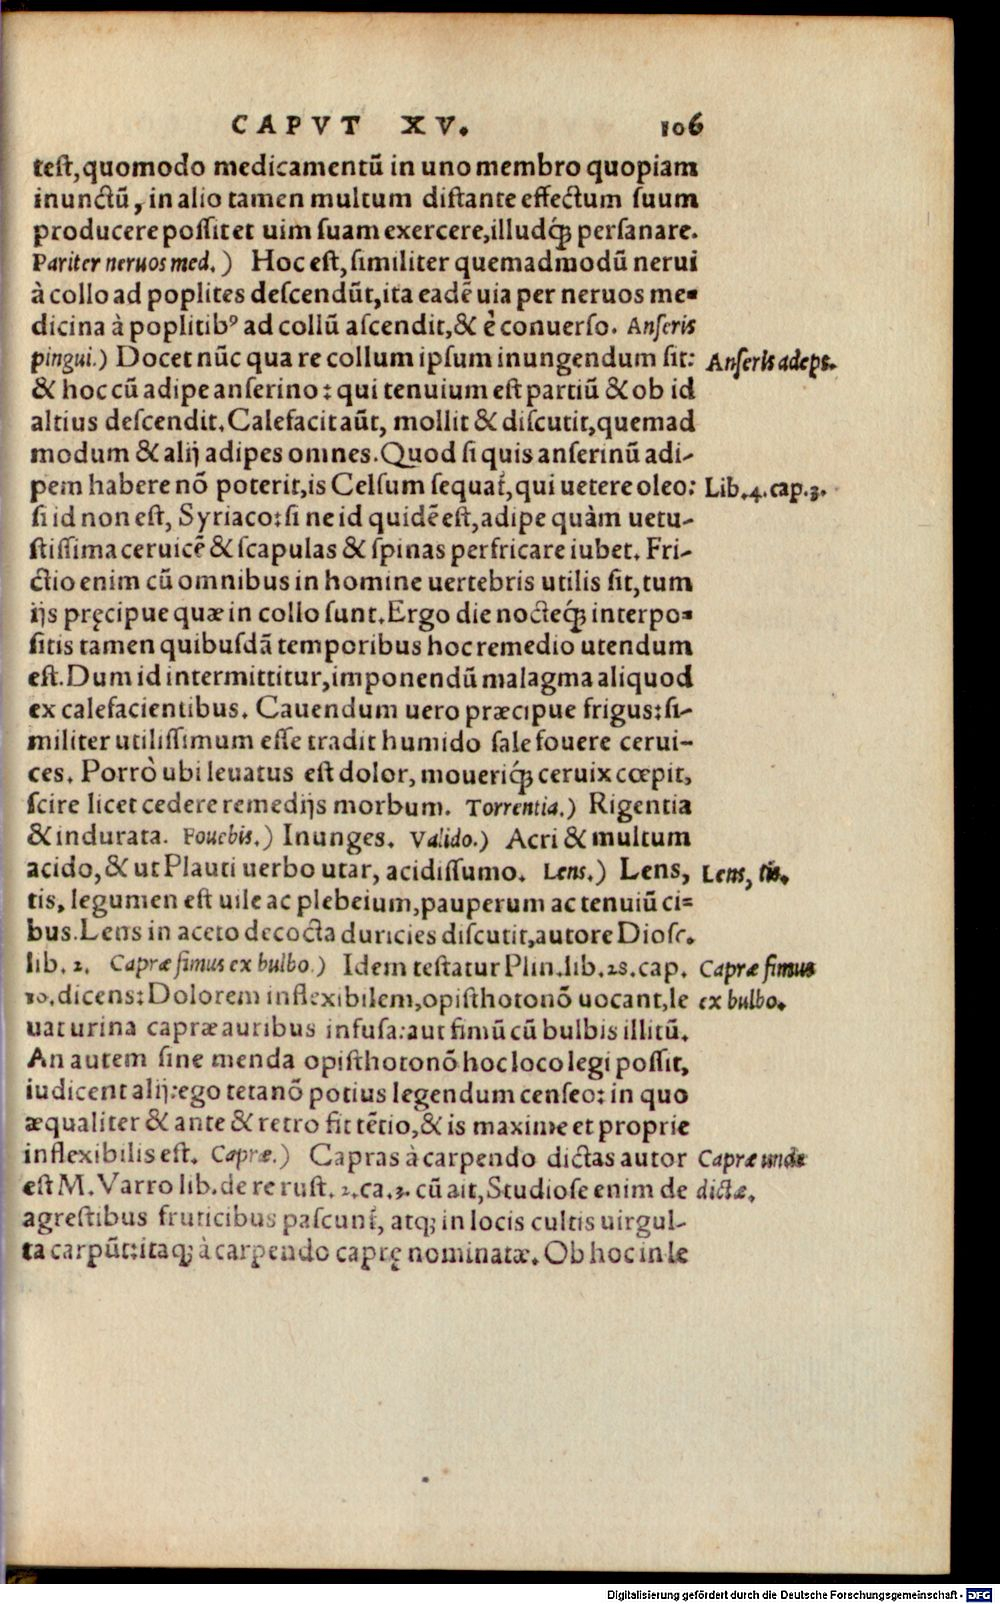 CAPVT XV. 106
test, quomodo medicamentũ in uno membro quopiam
inunctũ, in alio tamen multum distante effectum suum
producere possit et uim suam exercere, illudq́ꝫ persanare.
Pariter neruos med.) Hoc est, similiter quemadmodũ nerui
à collo ad poplites descendũt, ita eadẽ uia per neruos me-
dicina à poplitibꝰ ad collũ ascendit, & è conuerso. Anseris
pingui.) Docet nũc qua re collum ipsum inungendum sit: Anseris adeps.
& hoc cũ adipe anserino: qui tenuium est partiũ & ob id
altius descendit. Calefacit aũt, mollit & discutit, quemad
modum & alij adipes omnes. Quod si quis anserinũ adi-
pem habere nõ poterit, is Celsum sequat᷑, qui uetere oleo: Lib. 4. cap. 3.
si id non est, Syriaco: si ne id quidẽ est, adipe quàm uetu-
stissima ceruicẽ & scapulas & spinas perfricare iubet. Fri-
ctio enim cũ omnibus in homine uertebris utilis sit, tum
ijs pręcipue quæ in collo sunt. Ergo die nocteq́ꝫ interpo-
sitis tamen quibusdã temporibus hoc remedio utendum
est. Dum id intermittitur, imponendũ malagma aliquod
ex calefacientibus. Cauendum uero præcipue frigus: si-
militer utilissimum esse tradit humido sale fouere cerui-
ces. Porrò ubi leuatus est dolor, moueriq́ꝫ ceruix cœpit,
scire licet cedere remedijs morbum. Torrentia.) Rigentia
& indurata. Fouebis.) Inunges. Valido.) Acri & multum
acido, & ut Plauti uerbo utar, acidissumo. Lens.) Lens, Lens, tis.
tis, legumen est uile ac plebeium, pauperum ac tenuiũ ci-
bus. Lens in aceto decocta duricies discutit, autore Diosc.
lib. 2. Capræ fimus ex bulbo.) Idem testatur Plin. lib. 28. cap. Capræ fimus
10. dicens: Dolorem inflexibilem, opisthotonõ uocant, le ex bulbo.
uat urina capræ auribus infusa: aut fimũ cũ bulbis illitũ.
An autem sine menda opisthotonõ hoc loco legi possit,
iudicent alij: ego tetanõ potius legendum censeo: in quo
æqualiter & ante & retro fit tẽtio, & is maxime et proprie
inflexibilis est. Capræ.) Capras à carpendo dictas autor Capræ unde
est M. Varro lib. de re rust. 2. ca. 3. cũ ait, Studiose enim de dictæ.
agrestibus fruticibus pascunt᷑, atqꝫ in locis cultis uirgul-
ta carpũt: itaqꝫ à carpendo caprę nominatæ. Ob hoc in le
Digitalisierung gefördert durch die Deutsche Forschungsgemeinschaft - DFG